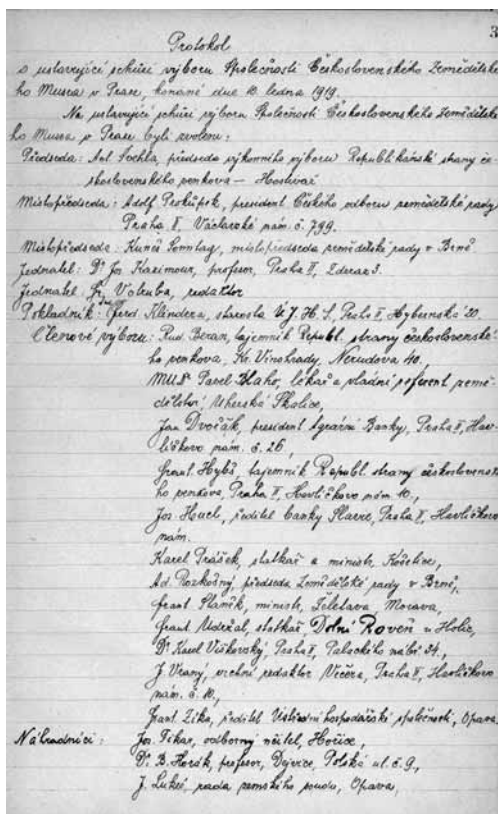 3
Protokol
o ustavující schůzi výboru Společnosti Československého Zemědělské-
ho Musea v Praze, konané dne 10. ledna 1919.
Na ustavující schůzi výboru Společnosti Československého Zemědělské-
ho Musea v Praze byli zvoleni:
Předseda: Ant. Sechla, předseda výkonného výboru Republikánské strany če-
skoslovenského venkova – Hostivař
Místopředseda: Adolf Prokůpek, president Českého odboru zemědělské rady,
Praha II, Václavské nám. č. 799.
Místopředseda: Kuneš Sonntag, místopředseda zemědělské rady v Brně
Jednatel: Dr Jos. Kazimour, profesor, Praha II, Zderaz 3.
Jednatel: Votruba, redaktor
Pokladník: Ferd. Klindera, starosta Ú. J. H. S., Praha II, Hybernská 20.
Členové výboru: Rud. Beran, tajemník Republ. strany československé-
ho venkova, Kr. Vinohrady, Nerudova 40.
MUDr Pavel Blaho, lékař a vládní referent země-
dělství, Uherská Skalice,
Jan Dvořák, president Agrární Banky, Praha II, Hav-
líčkovo nám. č. 26,
Frant. Hybš, tajemník Republ. strany československé-
ho venkova, Praha II, Havlíčkovo nám. 10.,
Jos. Hucl, ředitel banky Slavie, Praha II, Havlíčkovo
nám.
Karel Prášek, statkář a ministr, Košetice,
Ad. Rozkošný, předseda Zemědělské rady v Brně,
Frant. Staněk, ministr, Želetava Morava,
Frant. Udržal, statkář, Dolní Roveň u Holic,
Dr Karel Viškovský Praha II, Palackého nábř. 34.,
J. Vraný, vrchní redaktor Večera, Praha II, Havlíčkovo
nám. č. 10.,
Frant. Zika, ředitel Ústřední hospodářské společnosti, Opava.
Náhradníci: Jos. Pikar, odborný učitel, Hořice,
Dr. B. Horák, profesor, Dejvice, Polská ul. č. 9.,
J. Lukeš, rada zemského soudu, Opava,